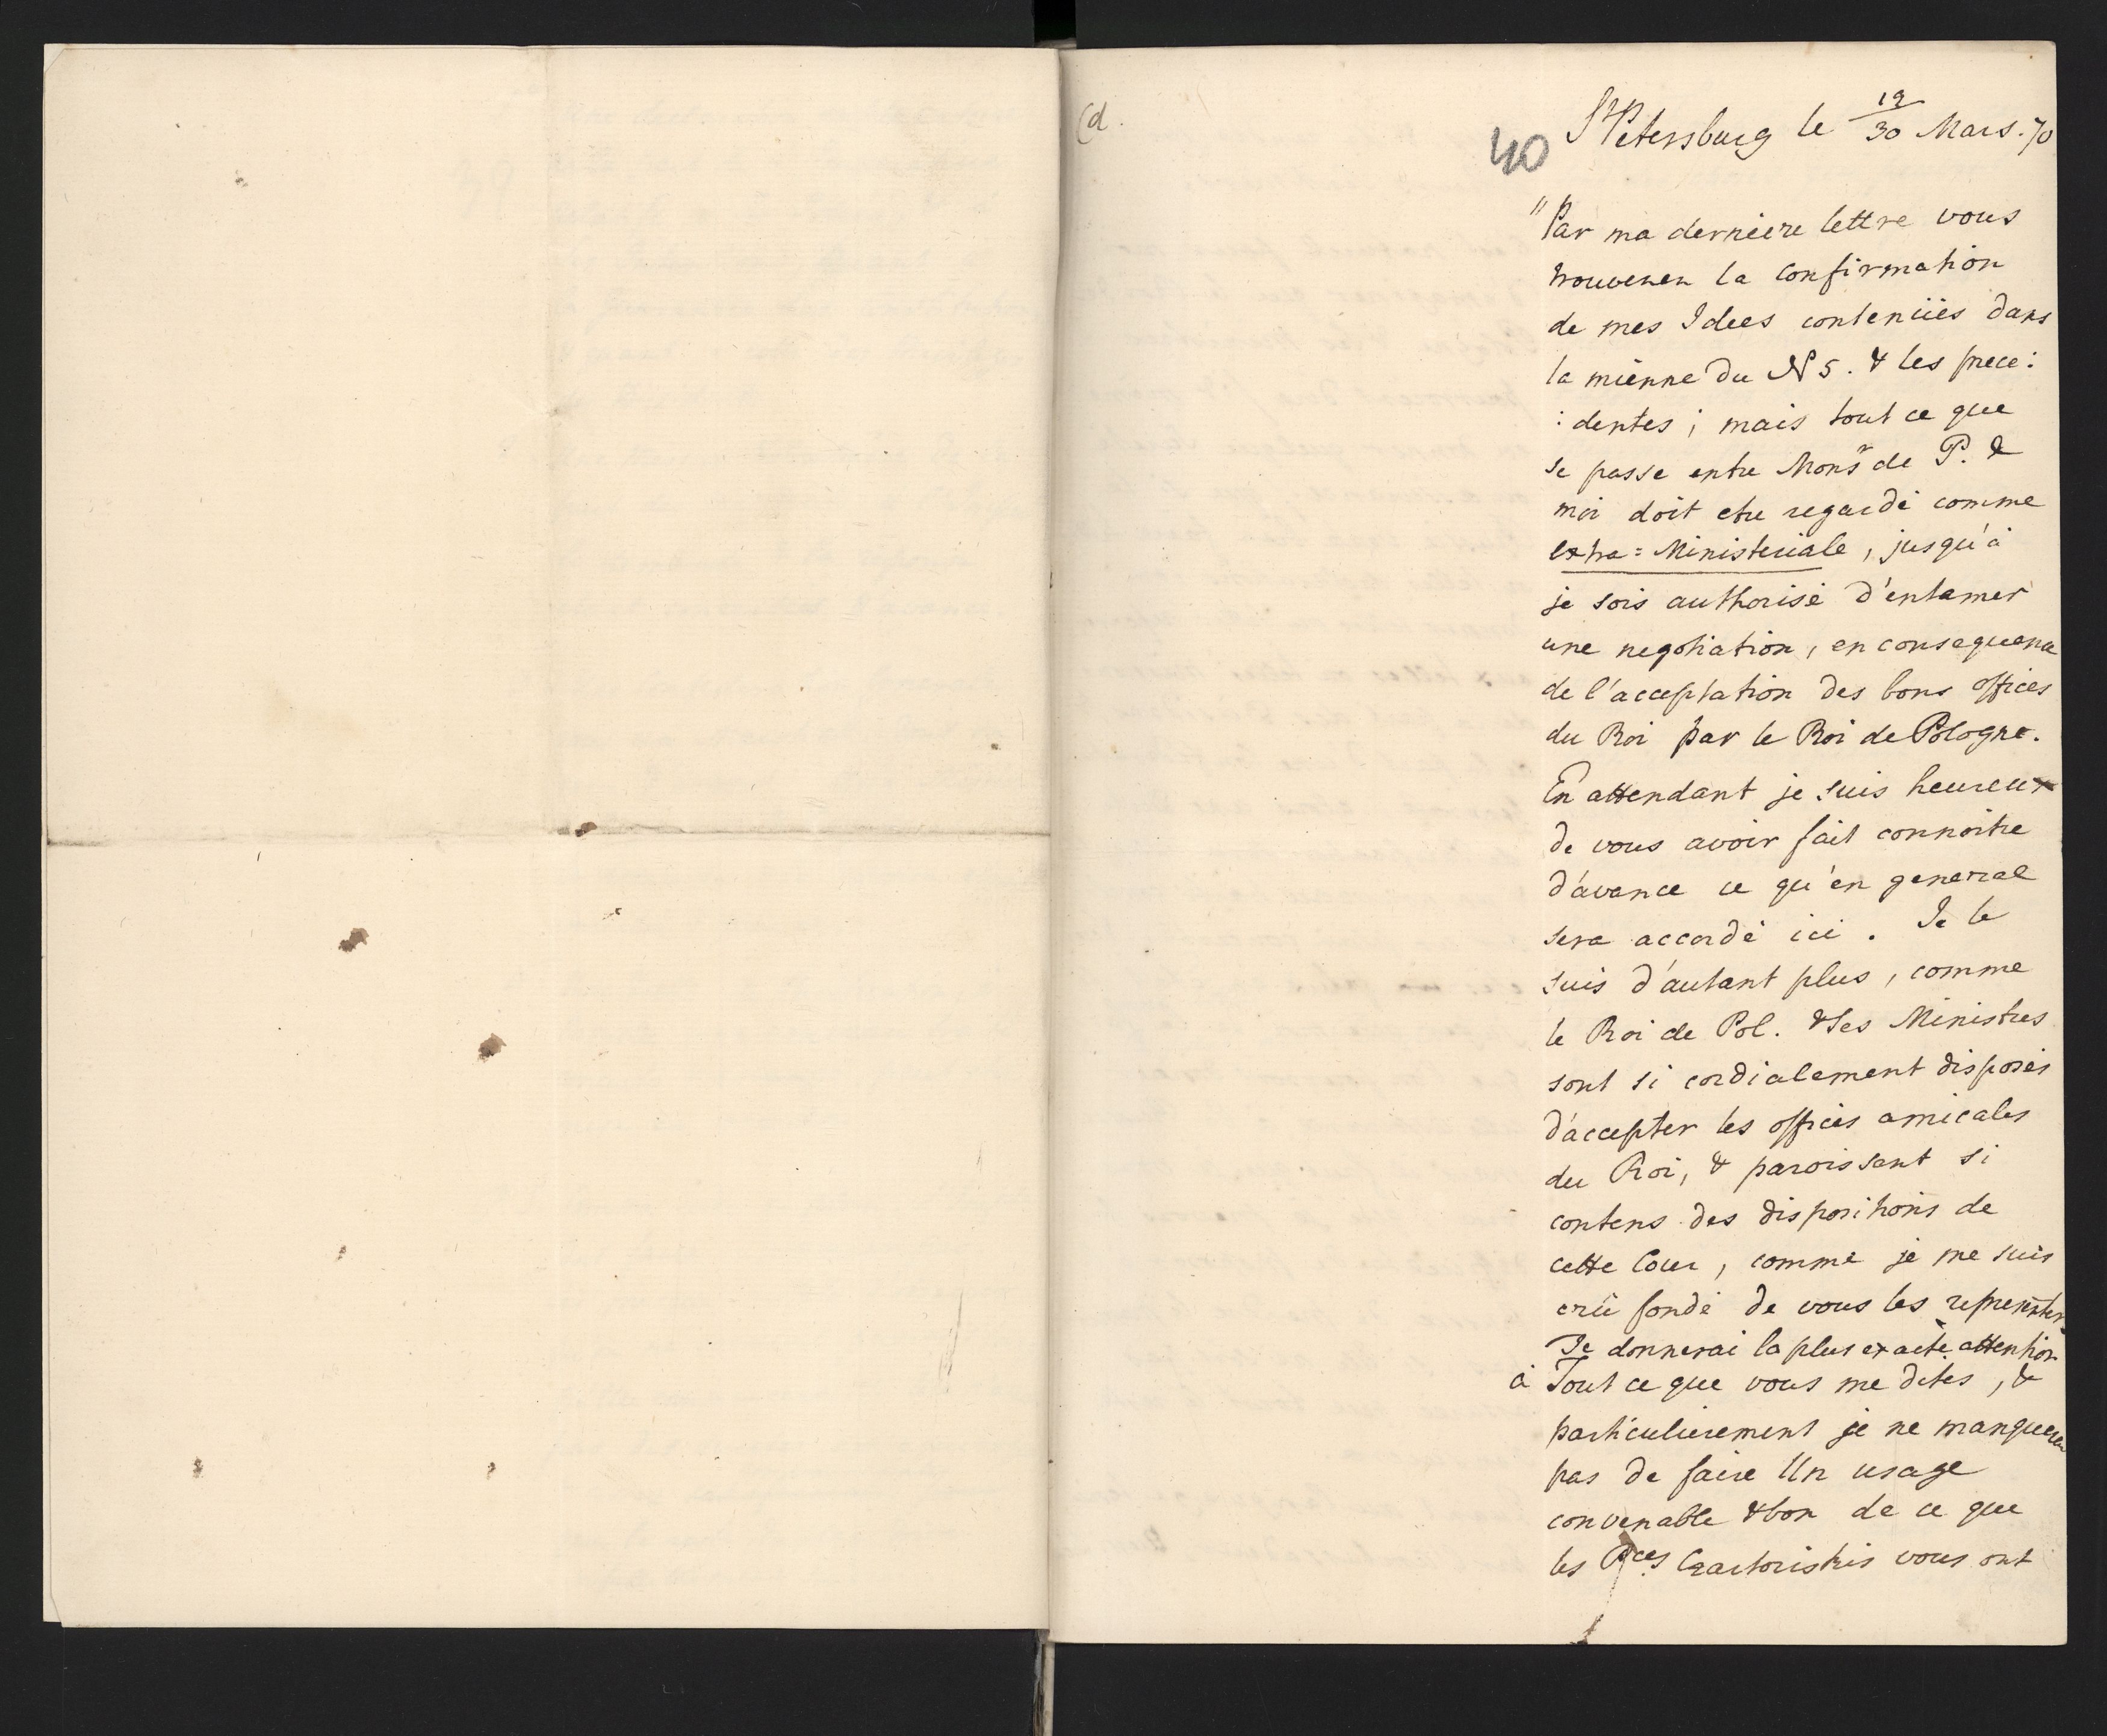 (d.
40
St Petersburg le 19/30 Mars. 70
"Par ma derniere lettre vous
trouveren la confirmation
de mes Idees contenües dans
la mienne du N 5. & les prece:
:dentes; mais tout ce que
se passe entre Monsr de P. &
moi doit etre regardé comme
extra=Ministeriale, jusqu'à
je sois authorisé d'entamer
une negotiation, en consequence
de l'acceptation des bons offices
du Roi par le Roi de Pologne.
En attendant je suis heureux
de vous avoir fait connoitre
d'avance ce qu'en general
sera accordé ici. Je le
suis d'autant plus, comme
le Roi de Pol. & ses Ministres
sont si cordialement disposés
d'accepter les offices amicales
du Roi, & paroissent si
contens des dispositions de
cette Cour, comme je me suis
crû fondé de vous les representer.
Je donnerai la plus exacte attention
à Tout ce que vous me dites, &
particulierement je ne manquerai
pas de faire Un usage
convenable & bon de ce que
les Pces Czartoriskis vous ont